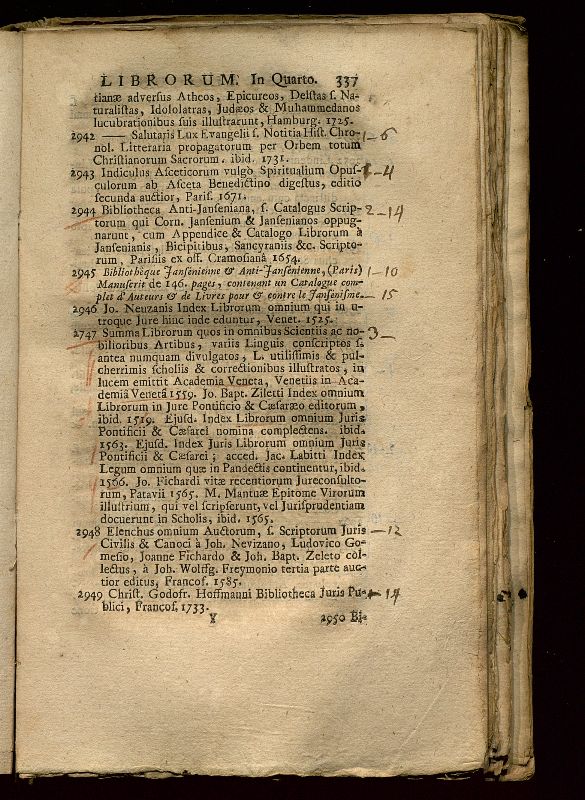 LIBRORUM. In Quarto. 337
tianæ adversus Atheos, Epicureos, Deistas s. Na-
turalistas, Idololatras, Judæos & Muhammedanos
lucubrationibus suis illustrarunt, Hamburg. 1725.
2942 —— Salutaris Lux Evangelii s. Notitia Hist. Chro- 1—6
nol. Litteraria propagatorum per Orbem totum
Christianorum Sacrorum. ibid. 1731.
2943 Indiculus Asceticorum vulgo Spiritualium Opus- —4
culorum ab Asceta Benedictino digestus, editio
secunda auctior, Paris. 1671.
2944 Bibliotheca Anti-Janseniana, s. Catalogus Scrip- 2—14
torum qui Corn. Jansenium & Jansenianos oppug-
narunt, cum Appendice & Catalogo Librorum à
Jansenianis, Bicipitibus, Sancyraniis &c. Scripto-
rum, Parisiis ex off. Cramosiana 1654.
2945 Bibliothèque Jansenienne & Anti-Jansenienne, (Paris) 1—10
Manuscrit de 146. pages, contenant un Catalogue com-
plet d'Auteurs & de Livres pour & contre le Jansenisme. —15
2946 Jo. Neuzanis Index Librorum omnium qui in u-
troque Jure hinc inde eduntur, Venet. 1525.
2747 Summa Librorum quos in omnibus Scientiis ac no- 3—
bilioribus Artibus, variis Linguis conscriptos s.
antea numquam divulgatos, L. utilissimis & pul-
cherrimis scholiis & correctionibus illustratos, in
lucem emittit Academia Veneta, Venetiis in Aca-
demiâ Venetâ 1559. Jo. Bapt. Zilerti Index omnium
Librorum in Jure Pontificio & Cæsaræo editorum,
ibid. 1519. Ejusd. Index Librorum omnium Juris
Pontificii & Cæsarei nomina complectens. ibid.
1563. Ejusd. Index Juris Librorum omnium Juris
Pontificii & Cæsarei; acced. Jac. Labitti Index
Legum omnium quæ in Pandectis continentur, ibid.
1566. Jo. Fichardi vitæ recentiorum Jureconsulto-
rum, Patavii 1565. M. Mantuæ Epitome Virorum
illustrium, qui vel scripserunt, vel Jurisprudentiam
docuerunt in Scholis, ibid. 1565.
2948 Elenchus omnium Auctorum, s. Scriptorum Juris —12
Civilis & Canoci à Joh. Nevizano, Ludovico Go-
mesio, Joanne Fichardo & Joh. Bapt. Zeleto col-
lectus, à Joh. Wolffg. Freymonio tertia parte auc-
tior editus, Francof. 1585.
2949 Christ. Godofr. Hoffmanni Bibliotheca Juris Pu- —14
blici, Francof. 1733.
Y 2950 Bi-